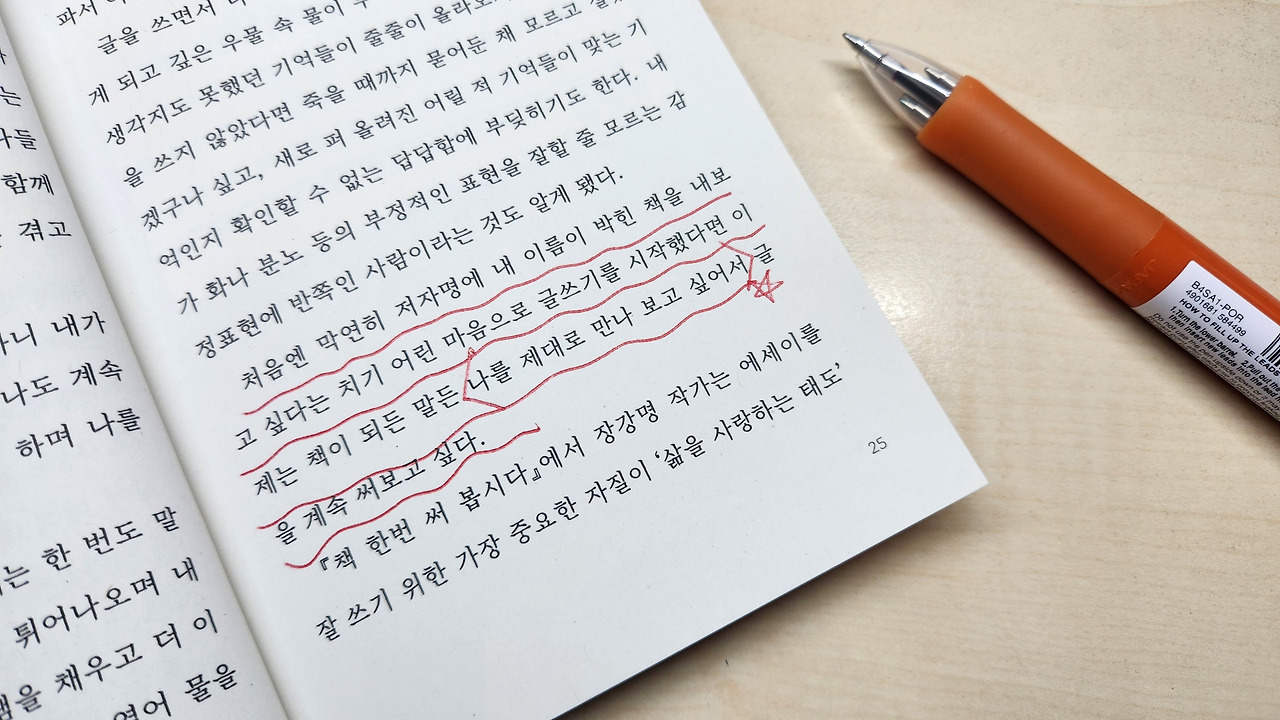 는
나들
함께
겪고
내가
나도 계속
하며 나를
한 번도 말
튀어나오며 내
채우고 더 이
물을
글을 쓰면서
게 되고 깊은 우물 속 물이
생각지도 못했던 기억들이 줄줄이
을 쓰지 않았다면 죽을 때까지 묻어둔 채 모르고
겠구나 싶고, 새로 퍼 올려진 어릴 적 기억들이 맞는 기
억인지 확인할 수 없는 답답함에 부딪히기도 한다. 내
가 화나 분노 등의 부정적인 표현을 잘할 줄 모르는 감
정표현에 반쪽인 사람이라는 것도 알게 됐다.
처음엔 막연히 저자명에 내 이름이 박힌 책을 내보
고 싶다는 치기 어린 마음으로 글쓰기를 시작했다면 이
제는 책이 되든 말든 나를 제대로 만나 보고 싶어서 글
을 계속 써보고 싶다.
『책 한번 써 봅시다』에서 장강명 작가는 에세이를
잘 쓰기 위한 가장 중요한 자질이 ‘삶을 사랑하는 태도’
25
B4SA1-POR
4901681 584499
HOW TO FILL UP THE